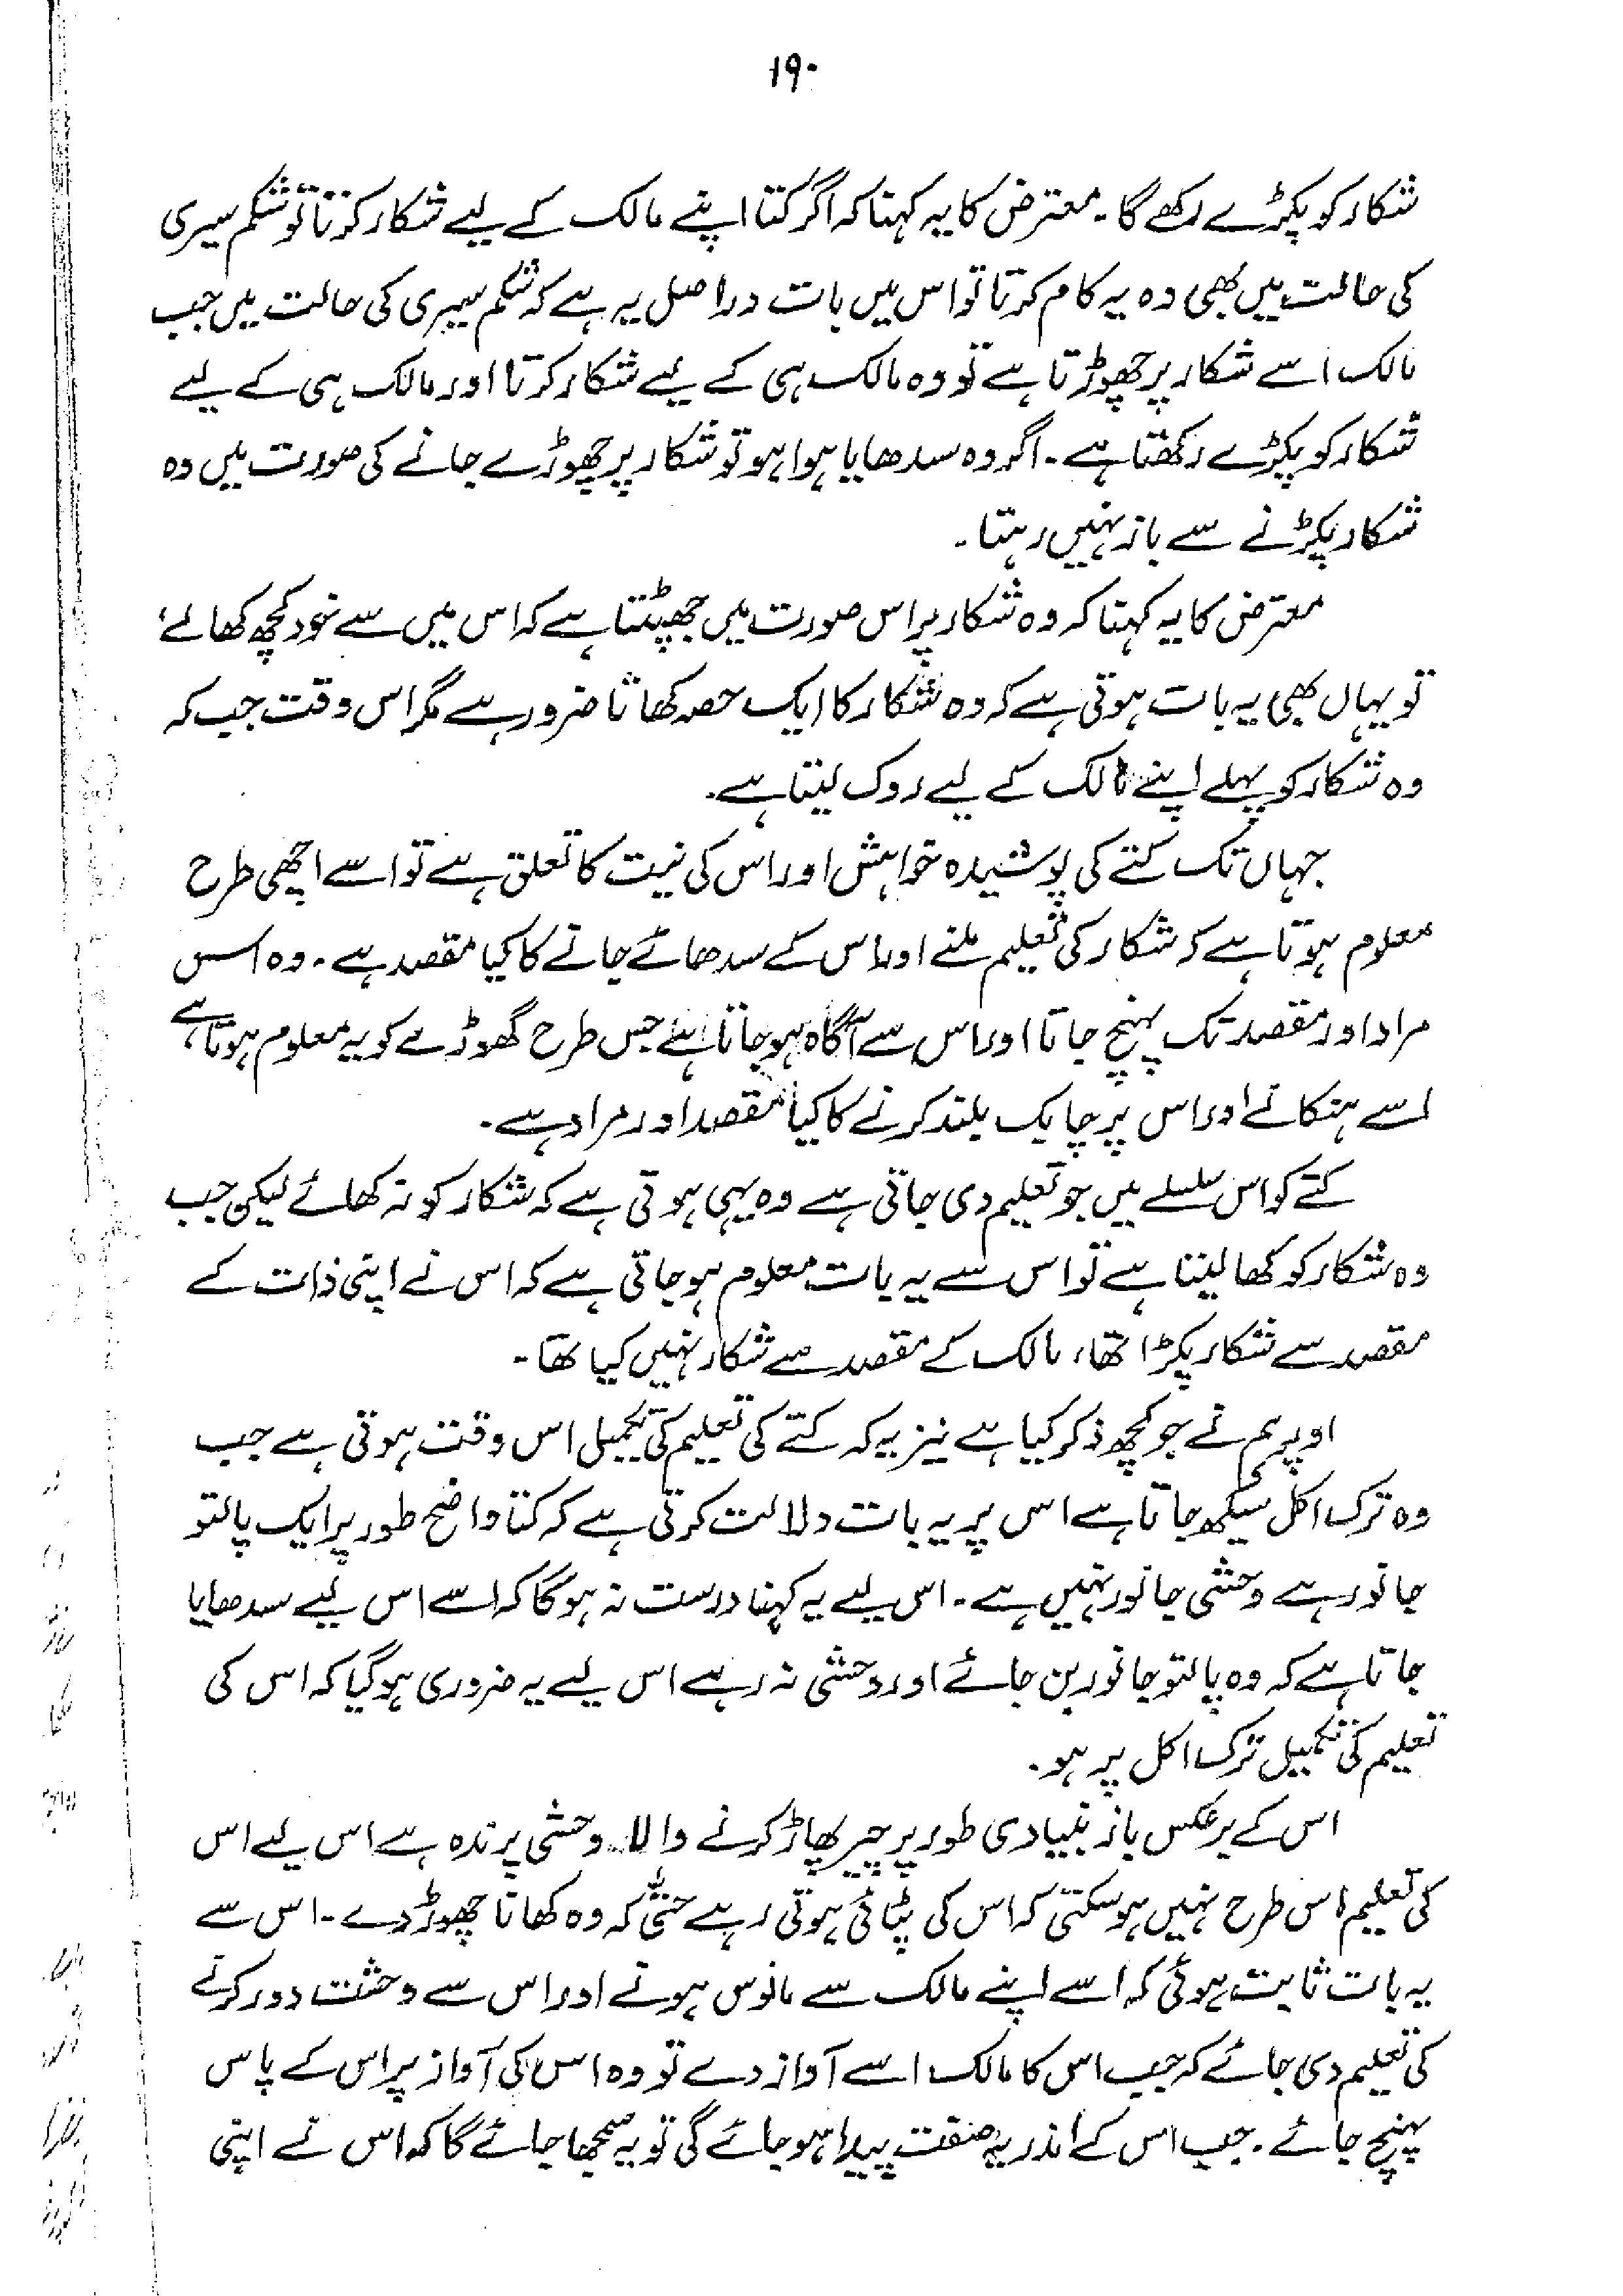 ۱۹۰
شکار کو پکڑے رکھے گا۔ معترض کا یہ کہنا کہ اگر کتا اپنے مالک کے لیے شکار کرتا تو شکم سیری
کی حالت میں بھی وہ یہ کام کرتا تو اس میں بات دراصل یہ ہے کہ شکم سیری کی حالت میں جب
مالک اسے شکار پر چھوڑتا ہے تو وہ مالک ہی کے لیے شکار کرتا اور مالک ہی کے لیے
شکار کو پکڑے رکھتا ہے۔ اگر وہ سدھایا ہوا ہو تو شکار پر چھوڑے جانے کی صورت میں وہ
شکار پکڑنے سے باز نہیں رہتا۔
معترض کا یہ کہنا کہ وہ شکار پر اس صورت میں جھپٹتا ہے کہ اس میں سے خود کچھ کھا لے،
تو یہاں بھی یہ بات ہوتی ہے کہ وہ شکار کا ایک حصہ کھاتا ضرور ہے مگر اس وقت جب کہ
وہ شکار کو پہلے اپنے مالک کے لیے روک لیتا ہے۔
جہاں تک کتے کی پوشیدہ خواہش اور اس کی نیت کا تعلق ہے تو اسے اچھی طرح
معلوم ہوتا ہے کہ شکار کی تعلیم ملنے اور اس کے سدھائے جانے کا کیا مقصد ہے۔ وہ اس
مراد اور مقصد تک پہنچ جاتا اور اس سے آگاہ ہو جاتا ہے جس طرح گھوڑے کو یہ معلوم ہوتا ہے
اسے ہنکانے اور اس پر چابک بلند کرنے کا کیا مقصد اور مراد ہے۔
کتے کو اس سلسلے میں جو تعلیم دی جاتی ہے وہ یہی ہوتی ہے کہ شکار کو نہ کھائے لیکن جب
وہ شکار کو کھا لیتا ہے تو اس سے یہ بات معلوم ہو جاتی ہے کہ اس نے اپنی ذات کے
مقصد سے شکار پکڑا تھا، مالک کے مقصد سے شکار نہیں کیا تھا۔
اوپر ہم نے جو کچھ ذکر کیا ہے نیز یہ کہ کتے کی تعلیم کی تکمیل اس وقت ہوتی ہے جب
وہ ترک اکل سیکھ جاتا ہے اس پر یہ بات دلالت کرتی ہے کہ کتا واضح طور پر ایک پالتو
جانور ہے وحشی جانور نہیں ہے۔ اس لیے یہ کہنا درست نہ ہوگا کہ اسے اس لیے سدھایا
جاتا ہے کہ وہ پالتو جانور بن جائے اور وحشی نہ رہے اس لیے یہ ضروری ہو گیا کہ اس کی
تعلیم کی تکمیل ترک اکل پر ہو۔
اس کے برعکس باز بنیادی طور پر چیر پھاڑ کرنے والا وحشی پرندہ ہے اس لیے اس
کی تعلیم اس طرح نہیں ہو سکتی کہ اس کی پٹائی ہوتی رہے حتیٰ کہ وہ کھانا چھوڑ دے۔ اس سے
یہ بات ثابت ہوئی کہ اسے اپنے مالک سے مانوس ہونے اور اس سے وحشت دور کرنے
کی تعلیم دی جائے کہ جب اس کا مالک اسے آواز دے تو وہ اس کی آواز پر اس کے پاس
پہنچ جائے۔ جب اس کے اندر یہ صفت پیدا ہو جائے گی تو یہ سمجھا جائے گا کہ اس نے اپنی